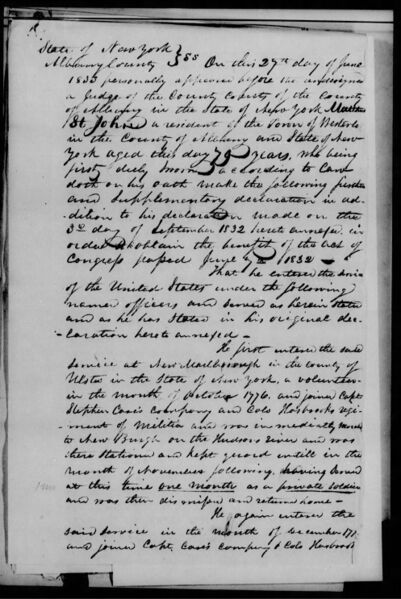 State of New York } ss
Albany County On this 27th day of June
1833 personally appeared before the undersigned
a Judge of the County Courts of the County
of Albany in the State of New York
St John a resident of the Town of Westerlo
in the County of Albany and State of New
York aged this day 79 years, who being
first duly sworn according to Law
doth on his oath make the following further
and Supplementary declaration in ad-
dition to his declaration made on the
3d day of September 1832 hereto annexed in
order to obtain the benefit of the act of
Congress passed June 7th 1832 —
That he entered the service
of the United States under the following
named officers and served as herein stated
and as he has Stated in his original dec-
laration hereto annexed —
He first entered the said
service at New Marlborough in the County of
Ulster in the State of New York, a volunteer
in the month of October 1776, and joined Capt
Stephen Case's Company and Cols Hasbrooks regi-
ment of Militia and was immediately
to New Burgh on the Hudsons River and was
there Stationed and kept guard untill in the
month of November following, having served
at this time one month as a private soldier
and was then dismissed and returned home —
He again entered the
said service in the month of December
and joined Capt. Case's Company & Cols Hasbrook